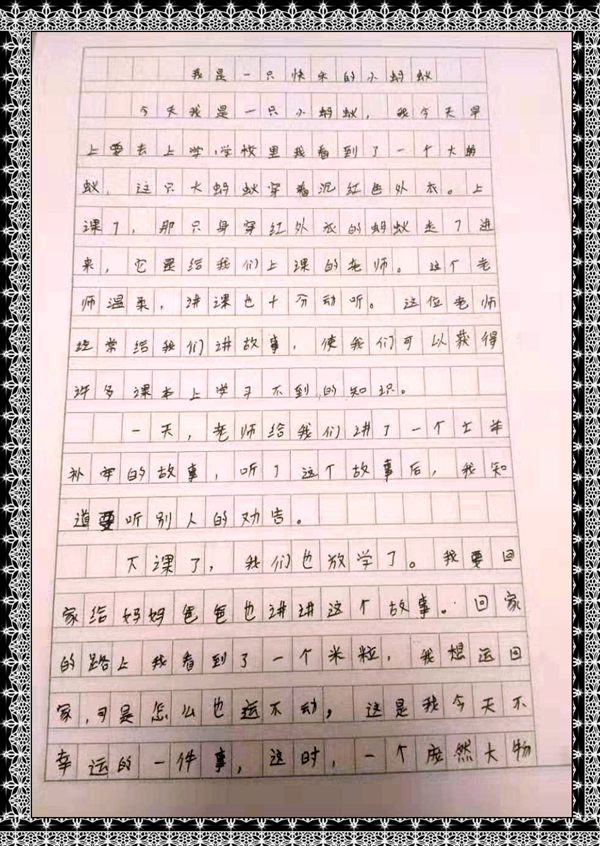 我是一只快乐的小蚂蚁
今天我是一只小蚂蚁，我今天早
上要去上学，学校里我看到了一个大蚂
蚁，这只大蚂蚁穿着沉红色外衣。上
课了，那只身穿红外衣的蚂蚁走了进
来，它是给我们上课的老师。这个老
师温柔，讲课也十分动听。这位老师
经常给我们讲故事，使我们可以获得
许多课本上学习不到的知识。
一天，老师给我们讲了一个亡羊
补牢的故事，听了这个故事后，我知
道要听别人的劝告。
下课了，我们也放学了。我要回
家给妈妈爸爸也讲讲这个故事。回家
的路上我看到了一个米粒，我想运回
家，可是怎么也运不动，这是我今天不
幸运的一件事，这时，一个庞然大物